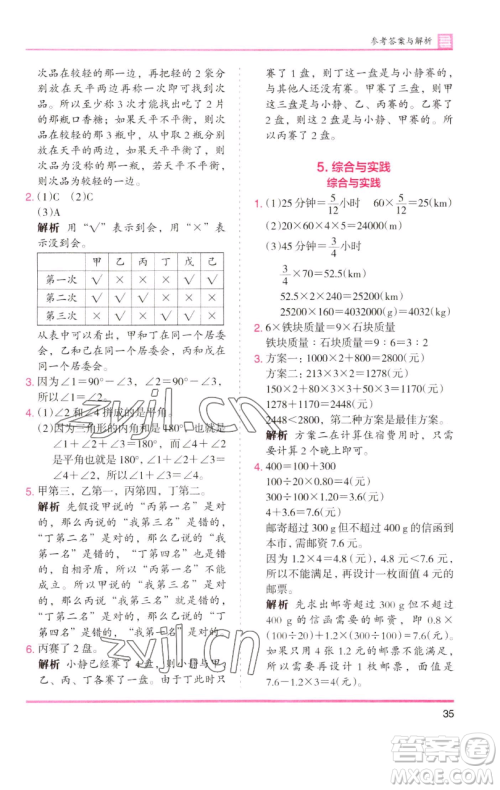 参考答案与解析
次品在较轻的那一边，再把较轻的 2 袋分
别放在天平两边再次称量，就能找到次
品。所以至少称 3 次才能找出少了 2 片
的那瓶口香糖；如果天平不平衡，则可以
断定次品在较轻的那一边，再把较轻的 2
袋分别放在天平两边，如果天平平衡，则
次品为没称的那瓶，若天平不平衡，则次
品在较轻的那一边。
2. (1)C (2)C
(3)A
解析 用“√”表示到会，用“×”表
示没到会。
甲 乙 丙 丁 戊 己
第一次 √ × × × √ √
第二次 × √ × × √ ×
第三次 √ × × × × √
从表中可以看出，甲和丁在同一个居委
会，乙和己在同一个居委会，丙和戊在同
一个居委会。
3. 因为∠1=90°-∠3，∠2=90°-∠3，
所以∠1=∠2。
4. (1)∠2 和∠4 拼成的是平角。
(2)因为三角形的内角和是 180°，所以
∠1+∠2+∠3=180°，而∠2+∠4
是平角也就是 180°，所以∠1+∠3=
∠4。
5. 甲第三，乙第一，丙第四，丁第二。
解析 先假设甲说的“丙第一名”是对
的，那么丙说的“我第三名”是错的，
“丁第二名”是对的，那么乙说的“我第
一名”是错的，“丁第四名”是对的，自
相矛盾，所以甲说的“我第三名”是对
的，那么丙说的“我第三名”是错的，
“丁第二名”是对的，那么乙说的“丁第
四名”是错的，“我第一名”是对的，剩
下的丙第四名。
6. 丙赛了 2 盘。
解析 小静已经赛了 4 盘，则小静与甲、
乙、丙、丁各赛了一盘；因为此时丁只
赛了 1 盘，则丁这一盘是与小静赛的，
与其他人还没有赛。甲赛了三盘，则甲
这三盘是与小静、乙、丙赛的。乙赛了
2 盘，则乙这两盘是与小静、甲赛的，
所以丙赛了 2 盘。
5. 综合与实践
综合与实践
1. (1)25 分钟=5/12小时 60×5/12=25(km)
(2)20×60×4×5=24000(m)
(3)45 分钟=3/4小时
3/4×70=52.5(km)
52.5×2×240=25200(km)
25200×160=4032000(g)=4032(kg)
2. 6×铁块质量=9×石块质量
铁块质量：石块质量=9：6=3：2
3. 方案一：1000×2+800=2800(元)
方案二：213×3×2=1278(元)
150×2+80×3×2+130×3=1170(元)
1278+1170=2448(元)
2448<2800，第二种方案是最佳方案。
解析 方案二在计算住宿费用时，只需要
计算 2 个晚上即可。
4. 400=100+300
100÷20×0.8=4(元)
300÷100×1.2=3.6(元)
4+3.6=7.6(元)
邮寄超过 300 g 但不超过 400 g 的信函到
本市，需邮资 7.6 元。
因为 1.2×4=4.8(元)，4.8 元<7.6 元，
所以不能满足需要。再设计一枚面值 4 元的
邮票。
解析 先求出邮寄超过 300 g 但不超过
400 g 的信函需要的邮资，即 0.8×
(100÷20)+1.2×(300÷100)=7.6(元)。
如果只用 4 张 1.2 元的邮票，显然不能
满足需要，所以再设计 1 枚邮票，面值是
7.6-1.2×3=4(元)。
35
zyjl.cn
zyjl.cn
作业精灵